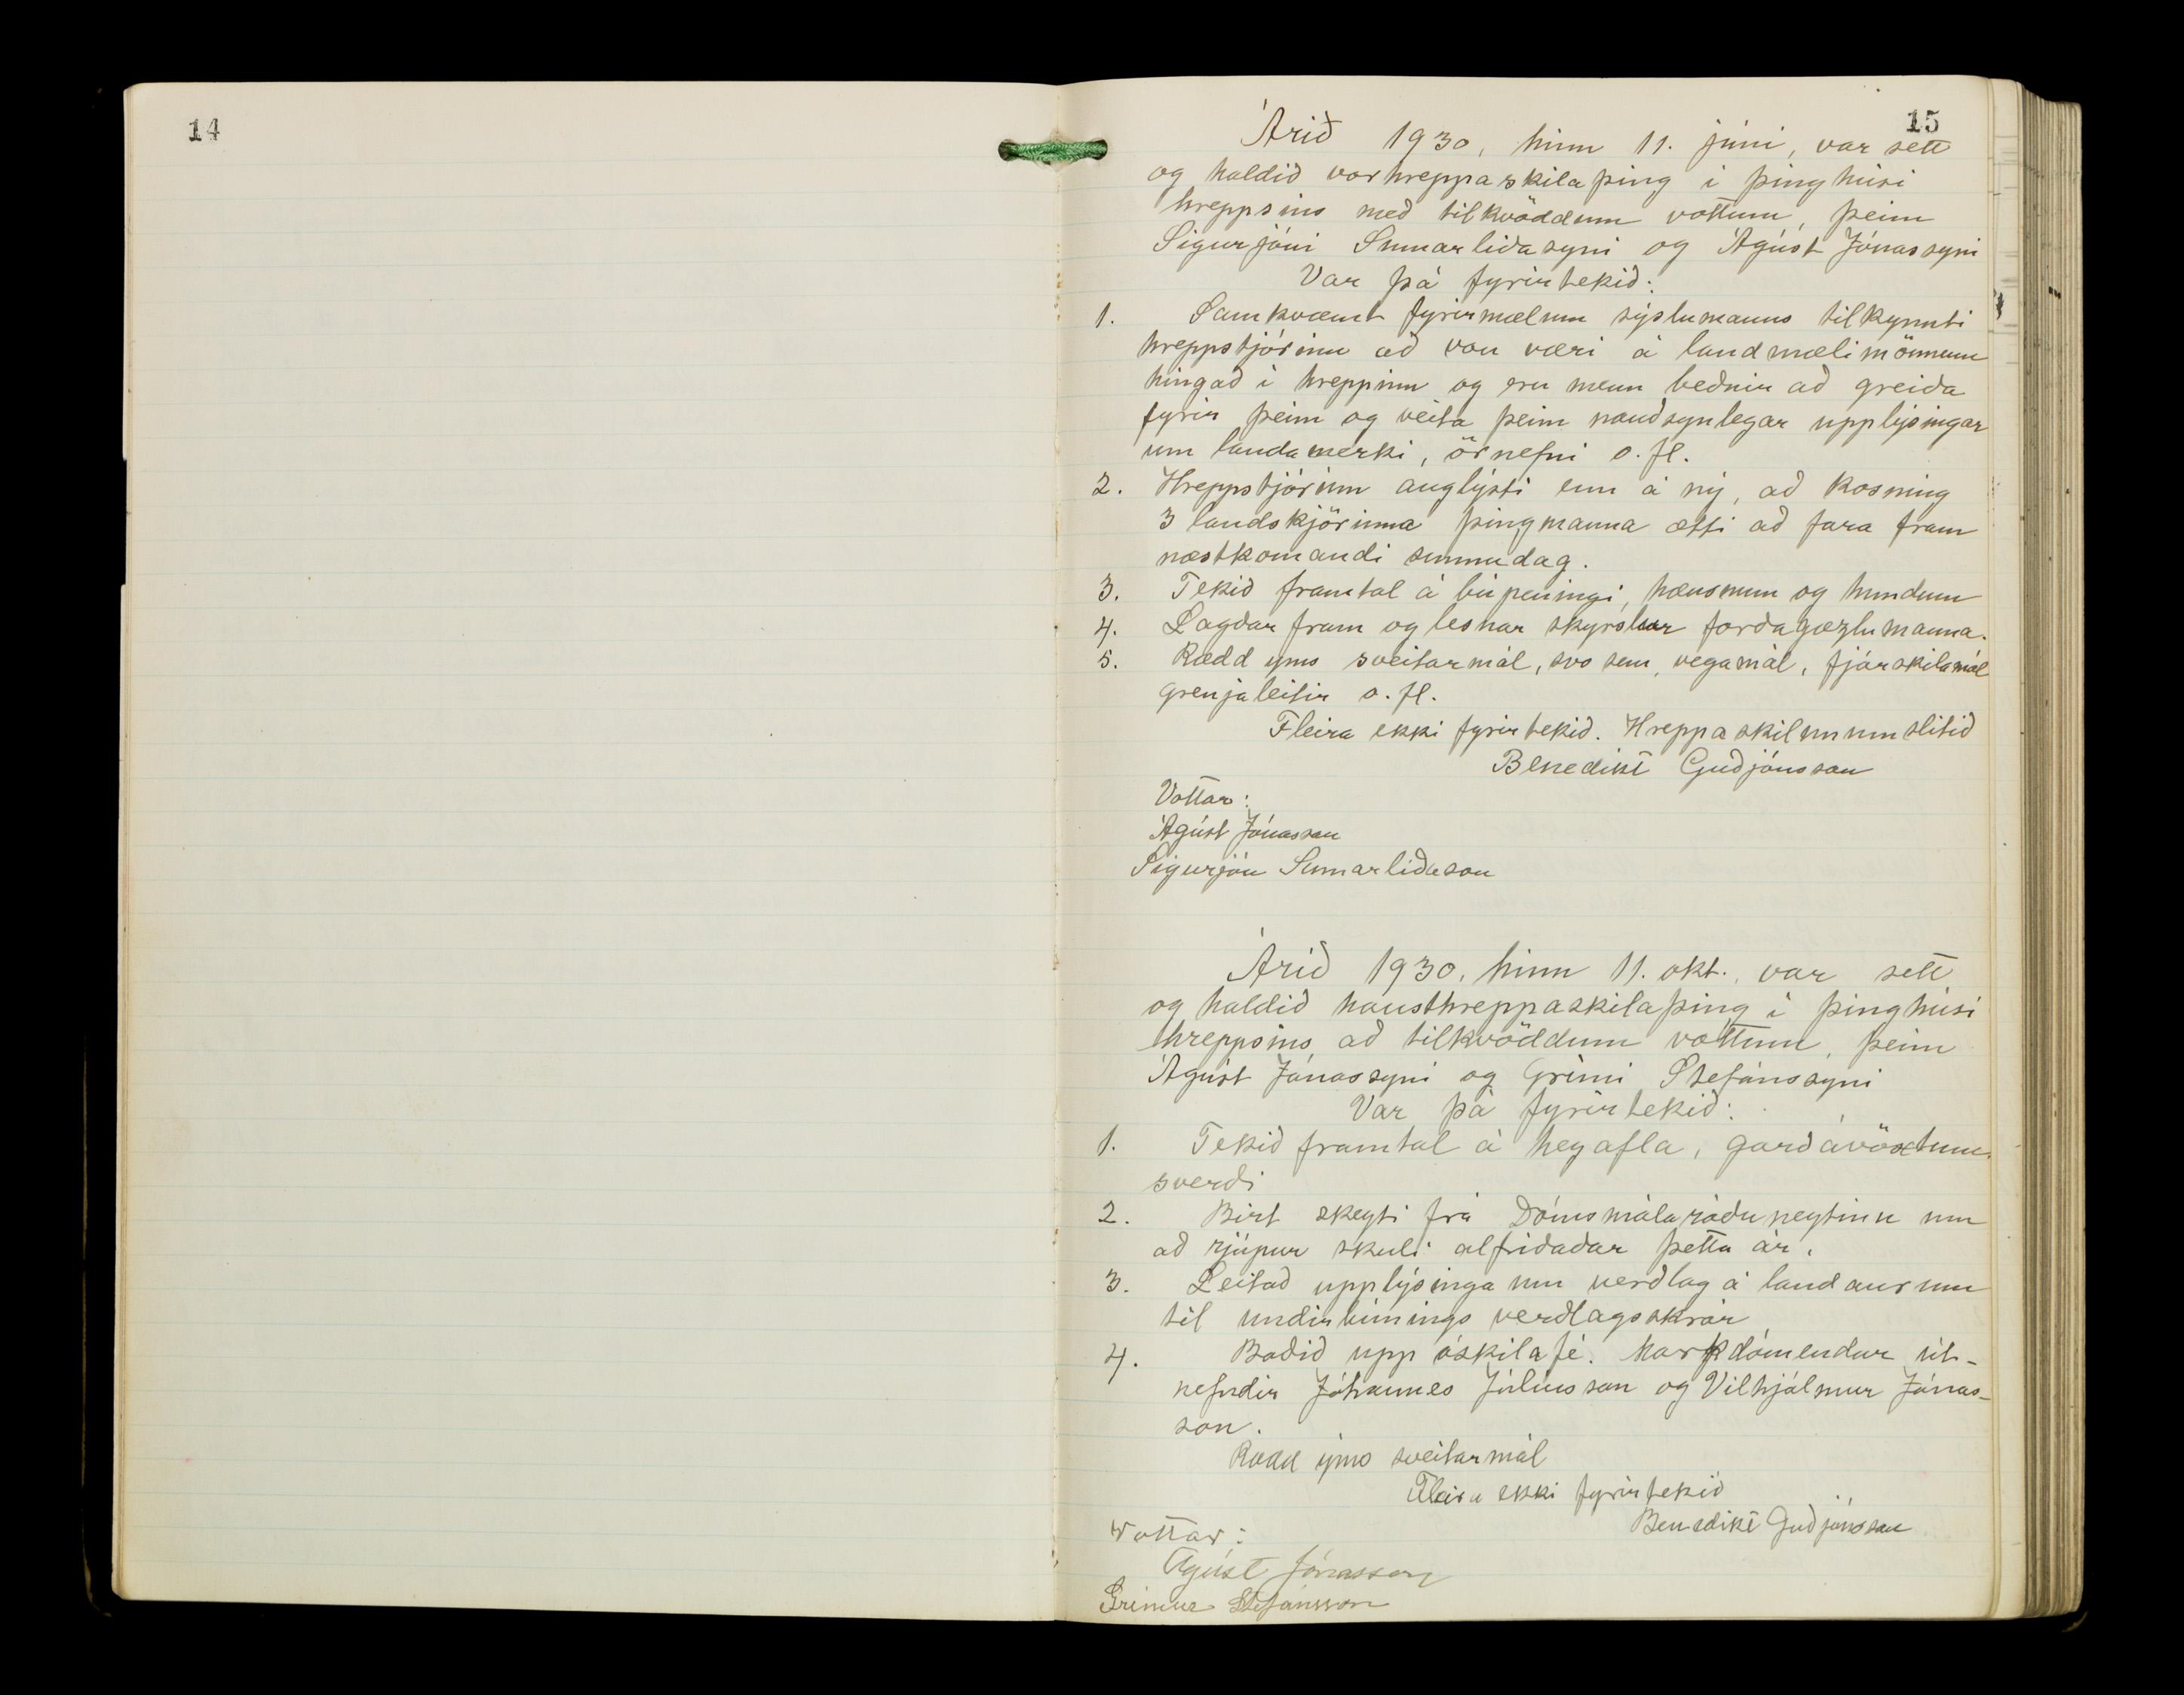 14
15
Árið 1930, hinn 11. júní, var sett
og haldið vorhreppaskilaþing í þinghúsi
hreppsins með tilkvöddum vottum, þeim
Sigurjóni Sumarliðasyni og Ágúst Jónassyni
Var þá fyrirtekið:
1. Samkvæmt fyrirmælum sýslumanns tilkynnti
hreppstjórinn að von væri á landmælimönnum
hingað í hreppinn og eru menn beðnir að greiða
fyrir þeim og veita þeim nauðsynlegar upplýsingar
um landamerki, örnefni o.fl.
2. Hreppstjórinn auglýsti enn á ný, að kosning
3 landskjörinna þingmanna ætti að fara fram
næstkomandi sunnudag.
3. Tekið framtal á búpeningi, hænsnum og hundum
4. Lagðar fram og lesnar skyrslur forðagæzlumanna.
5. Rædd yms sveitarmál, svo sem, vegamál, fjárskilamál
grenjaleitir o.fl.
Fleira ekki fyrirtekið. Hreppaskilunum slitið
Benedikt Guðjónsson
Vottar:
Ágúst Jónasson
Sigurjón Sumarliðason
Árið 1930, hinn 11. okt., var sett
og haldið hausthreppaskilaþing í þinghúsi
hreppsins að tilkvöddum vottum, þeim
Ágúst Jónassyni og Grími Stefánssyni
Var þá fyrirtekið:
1. Tekið framtal á heyafla, garðávöxtum
sverði
2. Birt skeyti frá Dómsmálaráðuneytinu um
að rjúpur skuli alfriðaðar þetta ár.
3. Leitað upplýsinga um verðlag á landaurum
til undirbúnings verðlagsskrár
4. Boðið upp óskilafé. Markdómendur út-
nefndir Jóhannes Júlíusson og Vilhjálmur Jónas-
son.
Rædd ýms sveitarmál
Fleira ekki fyrirtekið
Benedikt Guðjónsson
Vottar:
Ágúst Jónasson
Grímur Stefánsson